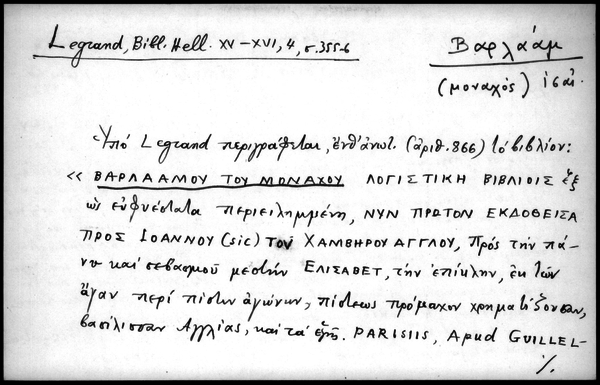 Legrand, Bibl. Hell. XV–XVI, 4, σ. 355-6
Βαρλάαμ
(μοναχός) ις΄ αἰ.
Ὑπό Legrand περιγράφεται, ἔνθ' ἀνωτ. (ἀριθ. 866) τό βιβλίον:
« ΒΑΡΛΑΑΜΟΥ ΤΟΥ ΜΟΝΑΧΟΥ ΛΟΓΙΣΤΙΚΗ ΒΙΒΛΙΟΙΣ ἓξ
ὡς εὐφυέστατα περιειλημμένη, ΝΥΝ ΠΡΩΤΟΝ ΕΚΔΟΘΕΙΣΑ
ΠΡΟΣ ΙΟΑΝΝΟΥ (sic) ΤΟΥ ΧΑΜΒΗΡΟΥ ΑΓΓΛΟΥ, Πρός τήν πά-
νυ καί σεβασμοῦ μεστήν ΕΛΙΣΑΒΕΤ, τήν ἐπίκλην, ἐκ τῶν
ἄγαν περί πίστιν ἀγώνων, πίστεως πρόμαχον χρηματίζουσαν,
βασίλισσαν Ἀγγλίας, καί τά ἑξῆς. PARISIIS, Apud GUILLEL-
%.